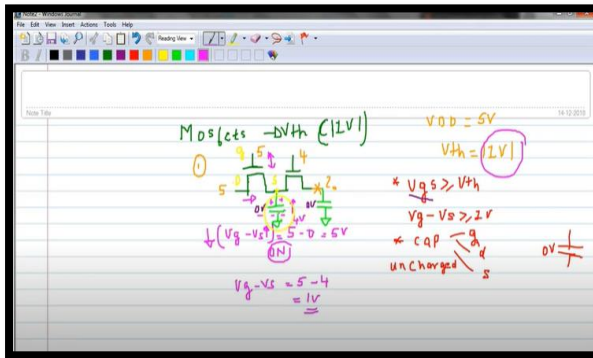 Note2 - Windows Journal
File Edit View Insert Actions Tools Help
Reading View
B I
Note Title
14-12-2010
Mosfets → Vth (|1V|)
VDD = 5V
Vth = |1V|
1
g 5
4
5 D S
x ?
0V
4V
0V
↓(Vg - Vs↑) = 5 - 0 = 5V
ON
Vg - Vs = 5 - 4
= 1V
* Vgs ≥ Vth
Vg - Vs ≥ 1V
* cap g
d
uncharged s
0V